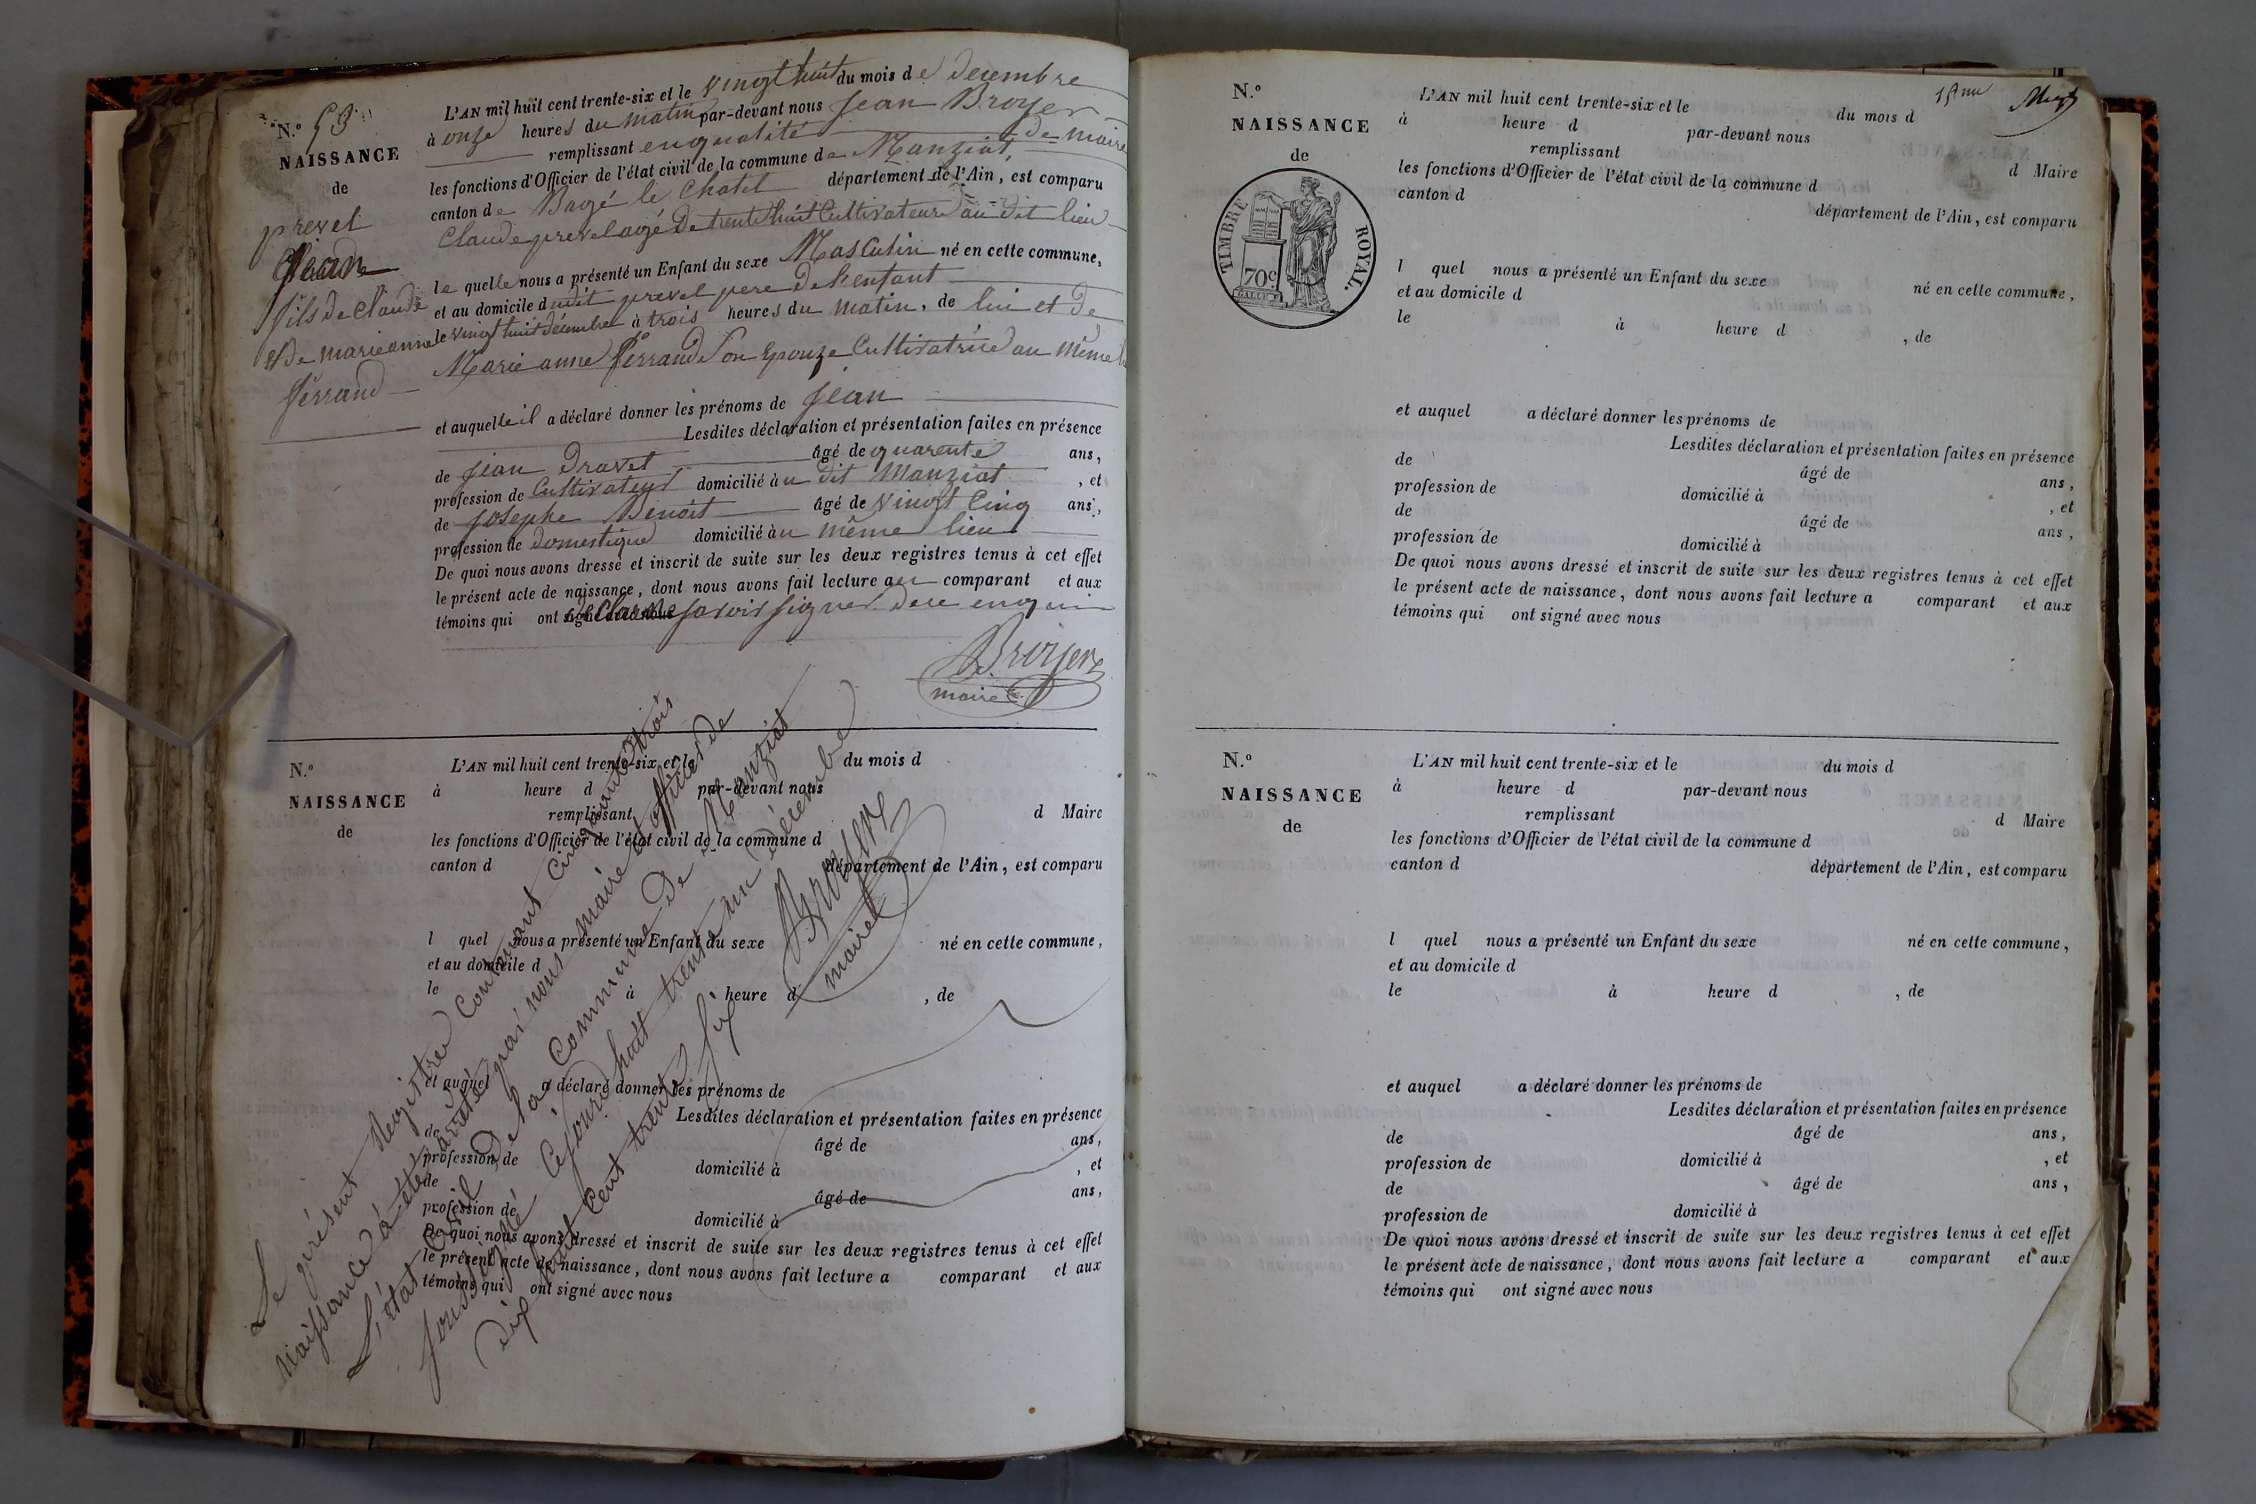 N.º 53
NAISSANCE
de
prevel
Jean
fils de Claude
et de marie anne
ferrand
L'AN mil huit cent trente-six et le vingt huit du mois de decembre
à onze heures du matin par-devant nous Jean Broyer
remplissant en qualité de maire
les fonctions d'Officier de l'état civil de la commune de Manziat,
canton de Bagé le Chatel département de l'Ain, est comparu
Claude prevel agé de trente huit Cultivateur au dit lieu
le quelle nous a présenté un Enfant du sexe Masculin né en cette commune,
et au domicile dudit prevel pere de l'enfant
le vingt huit décembre à trois heures du matin, de lui et de
Marie anne ferrand son Epouze Cultivatrice au même
et auquelle il a déclaré donner les prénoms de Jean
Lesdites déclaration et présentation faites en présence
de Jean Dravet âgé de quarente ans,
profession de Cultivateur domicilié au dit Manziat, et
de Josephe Benoit âgé de vingt Cinq ans,
profession de domestique domicilié au même lieu
De quoi nous avons dressé et inscrit de suite sur les deux registres tenus à cet effet
le présent acte de naissance, dont nous avons fait lecture au comparant et aux
témoins qui ont savoir signer de ce enquis
Broyer
maire
N.º
NAISSANCE
de
L'AN mil huit cent trente-six et le du mois d
à heure d par-devant nous
remplissant d Maire
les fonctions d'Officier de l'état civil de la commune d
canton d département de l'Ain, est comparu
l quel nous a présenté un Enfant du sexe né en cette commune,
et au domicile d
le à heure d , de
et auquel a déclaré donner les prénoms de
Lesdites déclaration et présentation faites en présence
de âgé de ans,
profession de domicilié à , et
de âgé de ans,
profession de domicilié à
De quoi nous avons dressé et inscrit de suite sur les deux registres tenus à cet effet
le présent acte de naissance, dont nous avons fait lecture a comparant et aux
témoins qui ont signé avec nous
Le présent Registre Contenant Cinquante trois
Naissance à été arrêté par nous maire et officier de
L'état Civil de la Commune de Manziat
soussigné Cejourd'huit trente un décembre
dix huit Cent trente six
Broyer
maire
N.º
NAISSANCE
de
TIMBRE ROYAL.
70c
L'AN mil huit cent trente-six et le du mois d
à heure d par-devant nous
remplissant d Maire
les fonctions d'Officier de l'état civil de la commune d
canton d département de l'Ain, est comparu
l quel nous a présenté un Enfant du sexe né en cette commune,
et au domicile d
le à heure d , de
et auquel a déclaré donner les prénoms de
Lesdites déclaration et présentation faites en présence
de âgé de ans,
profession de domicilié à , et
de âgé de ans,
profession de domicilié à
De quoi nous avons dressé et inscrit de suite sur les deux registres tenus à cet effet
le présent acte de naissance, dont nous avons fait lecture a comparant et aux
témoins qui ont signé avec nous
N.º
NAISSANCE
de
L'AN mil huit cent trente-six et le du mois d
à heure d par-devant nous
remplissant d Maire
les fonctions d'Officier de l'état civil de la commune d
canton d département de l'Ain, est comparu
l quel nous a présenté un Enfant du sexe né en cette commune,
et au domicile d
le à heure d , de
et auquel a déclaré donner les prénoms de
Lesdites déclaration et présentation faites en présence
de âgé de ans,
profession de domicilié à , et
de âgé de ans,
profession de domicilié à
De quoi nous avons dressé et inscrit de suite sur les deux registres tenus à cet effet
le présent acte de naissance, dont nous avons fait lecture a comparant et aux
témoins qui ont signé avec nous